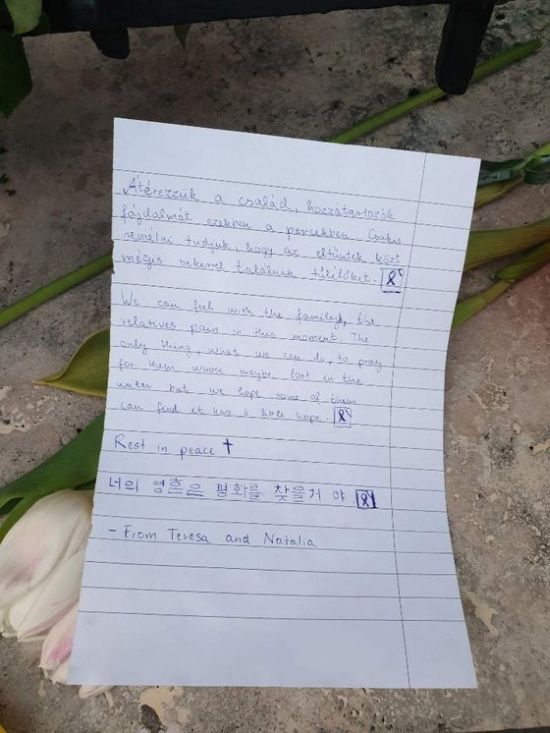 Átérezzük a család, hozzátartozók
fájdalmát ezekben a percekben. Csak
remélni tudjuk, hogy az eltűntek közt
mégis sikerül találnak túlélőket.
We can feel with the family, the
relatives pain in this moment. The
only thing, what we can do, to pray
for them whose maybe lost in the
water but we hope some of them
can find it has a little hope.
Rest in peace ✝
너의 영흔은 평화를 찾을거 야
- From Teresa and Natalia